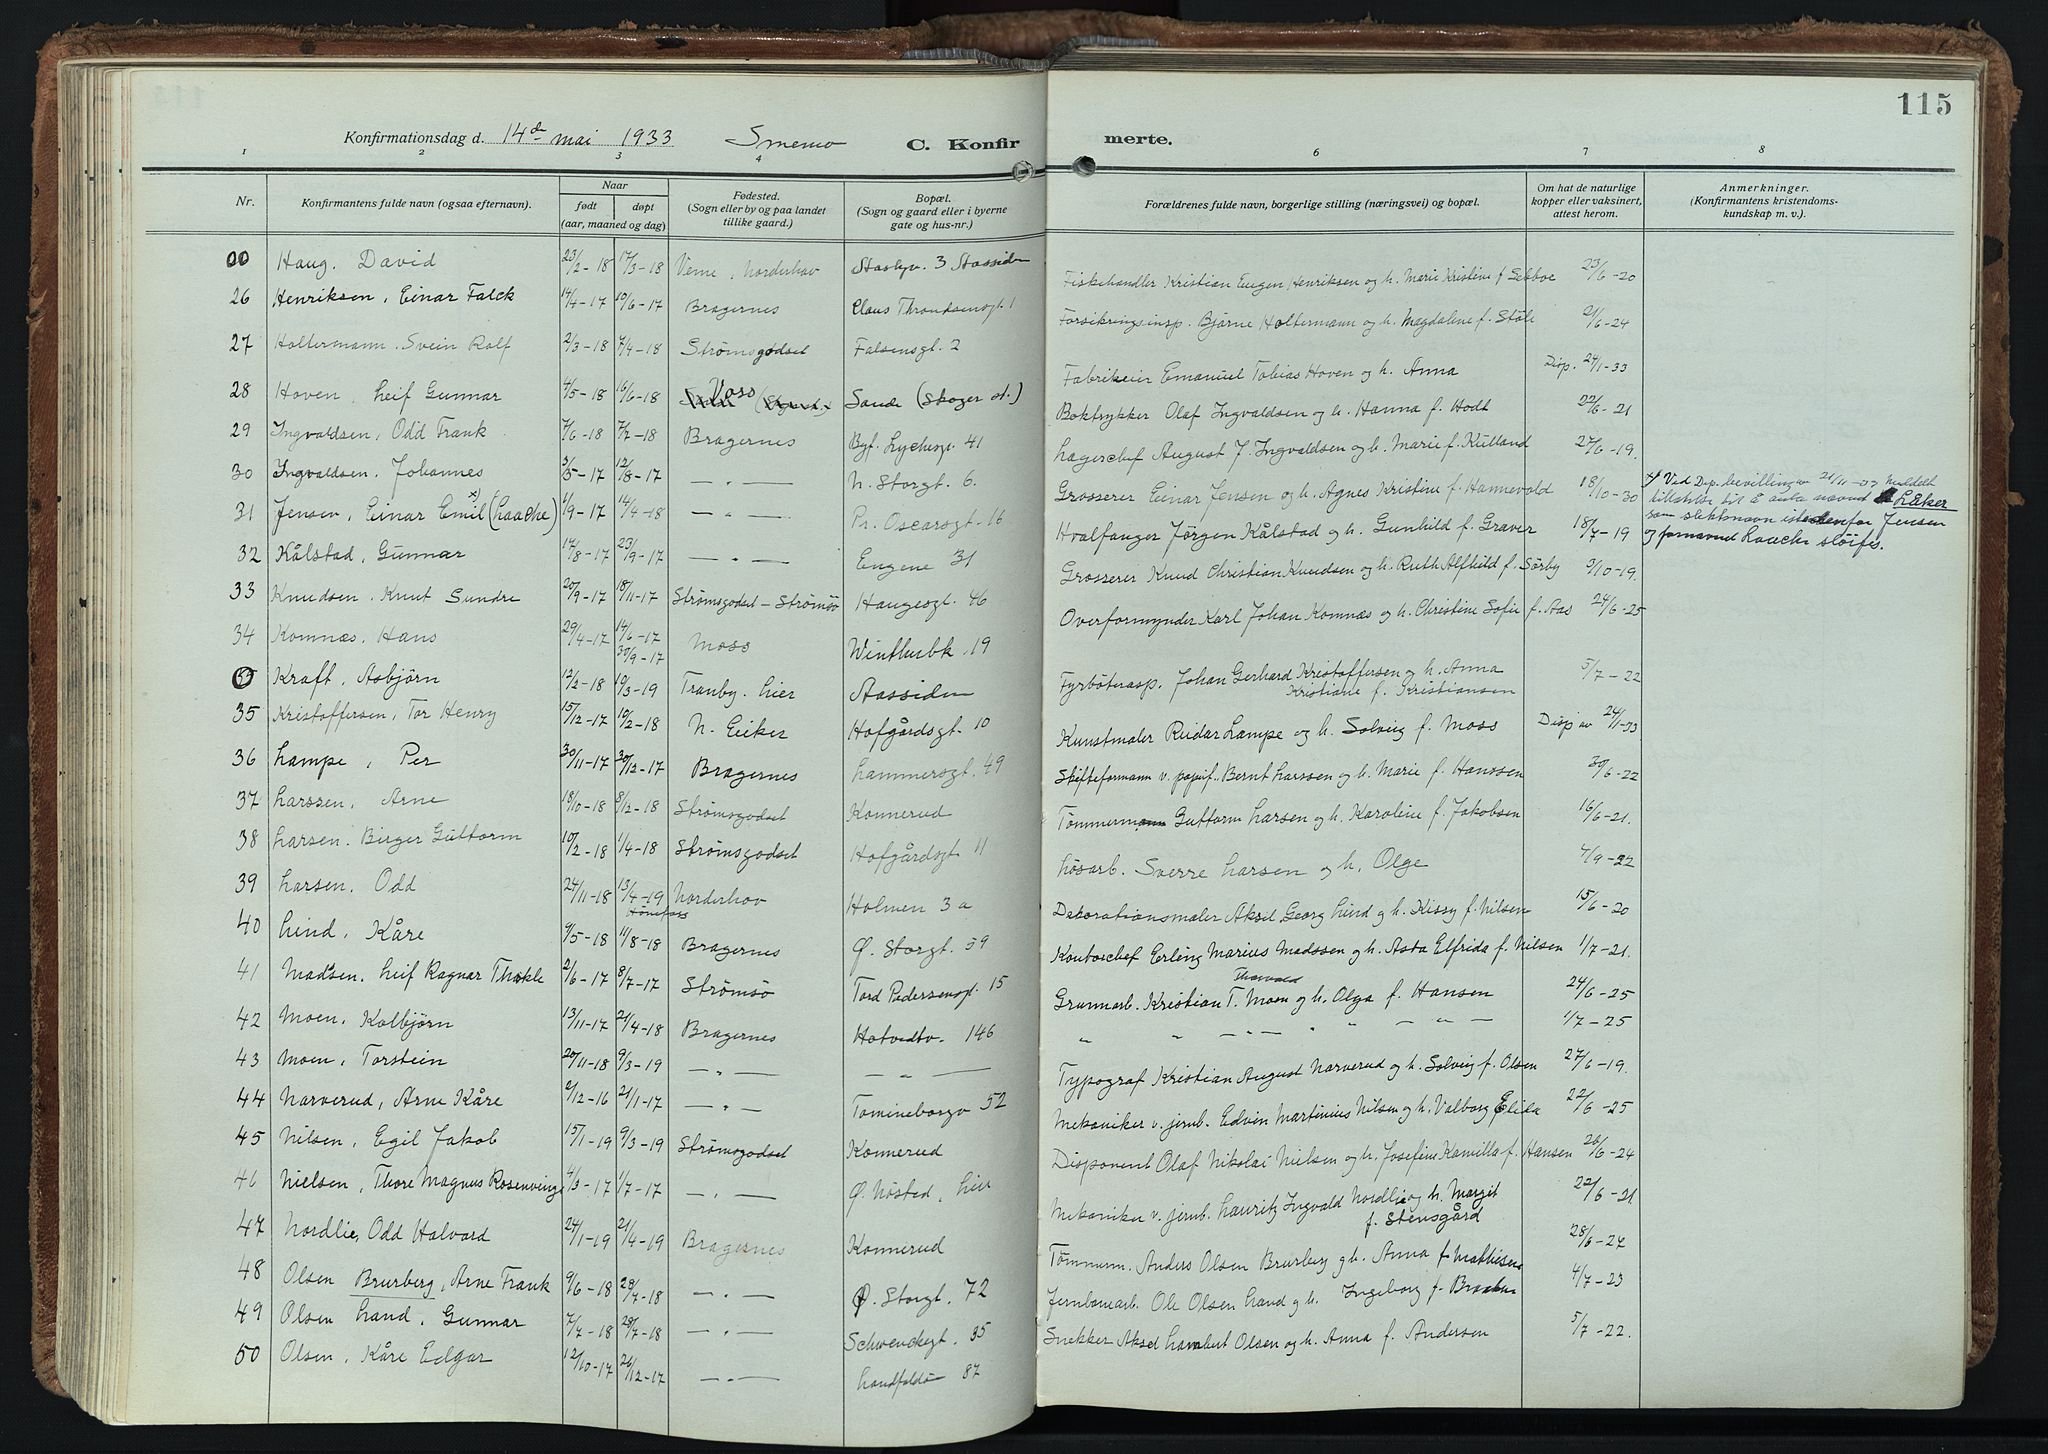 115
Konfirmationsdag d. 14de mai 1933 C. Konfirmerte.
1 2 3 4 6 7 8
Nr. Konfirmantens fulde navn (ogsaa efternavn). Naar født døpt (aar, maaned og dag) Fødested. (Sogn eller by og paa landet tillike gaard.) Bopæl. (Sogn og gaard eller i byerne gate og hus-nr.) Forældrenes fulde navn, borgerlige stilling (næringsvei) og bopæl. Om hat de naturlige kopper eller vaksinert, attest herom. Anmerkninger. (Konfirmantens kristendomskundskap m. v.)
00 Haug, David 23/2-18 17/3-18 Verne, Norderhov 3 Aassiden
26 Henriksen, Einar Falck 14/4-17 10/6-17 Bragernes Claus Throndsensgt. 1 Fiskehandler Kristian Eugen Henriksen og h. Marie Kristine f. Sebboe 23/6-20
27 Holtermann, Svein Rolf 2/3-18 7/4-18 Strømsgodset Falsensgt. 2 Forsikringsinsp. Bjarne Holtermann og h. Magdalene f. Støle 21/6-24
28 Hoven, Leif Gunnar 4/5-18 16/6-18 Voss Sande (Skoger st.) Fabrikeier Emanuel Tobias Hoven og h. Anna Disp. 24/1-33
29 Ingvaldsen, Odd Frank 7/6-18 7/7-18 Bragernes Byf. Lychesgt. 41 Boktrykker Olaf Ingvaldsen og h. Hanna f. Hodt 22/6-21
30 Ingvaldsen, Johannes 3/5-17 12/8-17 — " — N. Storgt. 6. Lagerchef August J. Ingvaldsen og h. Marie f. Kulland 27/6-19.
31 Jensen, Einar Emil x) (Laache) 1/9-17 14/4-18 — " — Pr. Oscarsgt. 16 Grosserer Einar Jensen og h. Agnes Kristine f. Hannevold 18/10-30 x) Ved Dep. bevilling av 21/11-33 meddelt tillatelse til å anta navnet Laker som slektsnavn istedenfor Jensen og fornavnet Laache sløifes.
32 Kålstad, Gunnar 14/8-17 23/9-17 — " — Engene 31 Hvalfanger Jørgen Kålstad og h. Gunhild f. Graver 18/7-19
33 Knudsen, Knut Sundre 20/9-17 18/11-17 Strømsgodset - Strømsø Haugesgt. 46 Grosserer Knud Christian Knudsen og h. Ruth Alfhild f. Sørby 3/10-19.
34 Komnæs, Hans 29/4-17 14/6-17 30/9-17 Moss Winthersbk. 19 Overformynder Karl Johan Komnæs og h. Christine Sofie f. Aas 24/6-25
Kraft, Asbjørn 12/2-18 10/3-19 Tranby, Lier Aassiden
35 Kristoffersen, Tor Henry 15/12-17 10/2-18 N. Eiker Hofgårdsgt. 10 Fyrbøterasp. Johan Gerhard Kristoffersen og h. Anna Kristiane f. Kristiansen 5/7-22
36 Lampe, Per 30/11-17 30/12-17 Bragernes Lammersgt. 49 Kunstmaler Reidar Lampe og h. Solveig f. Moss Disp av 24/1-33
37 Larssen, Arne 18/10-18 8/12-18 Strømsgodset Konnerud Skifteformann v. papirf. Bernt Larssen og h. Marie f. Hanssen 30/6-22
38 Larsen, Birger Guttorm 10/2-18 1/4-18 Strømsgodset Hofgårdsgt. 11 Tømmermann Guttorm Larsen og h. Karoline f. Jakobsen 16/6-21.
39 Larsen, Odd 24/11-18 13/4-19 Norderhov Hønefoss Holmen 3 a Løsarb. Sverre Larsen og h. Olge 4/9-22
40 Lind, Kåre 9/5-18 11/8-18 Bragernes Ø. Storgt. 59 Dekorationsmaler Aksel Georg Lind og h. Kissy f. Nilsen 15/6-20
41 Madsen, Leif Ragnar Thokle 2/6-17 8/7-17 Strømsø Tord Pedersensgt. 15 Kontorchef Erling Marius Madssen og h. Asta Elfrida f. Nilsen 1/7-21.
42 Moen, Kolbjørn 13/11-17 21/4-18 Bragernes Hotvedtv. 146 Grunnarb. Kristian T. Thorvald Moen og h. Olga f. Hansen 24/6-25
43 Moen, Torstein 20/11-18 9/3-19 — " — — " — " " — " — " " — " — 1/7-25
44 Narverud, Arne Kåre 9/12-16 21/1-17 — " — Tomineborgv 52 Typograf Kristian August Narverud og h. Solveig f. Olsen 27/6-19.
45 Nilsen, Egil Jakob 15/1-19 9/3-19 Strømsgodset Konnerud Mekaniker v. jernb. Edvin Martinius Nilsen og h. Valborg Elida 22/6-25
46 Nielsen, Thore Magnus Rosenvinge 4/3-17 1/7-17 — " — Ø. Nøsted, Lier Disponent Olaf Nikolai Nielsen og h. Josefine Kamilla f. Hansen 20/6-24
47 Nordlie, Odd Halvard 24/1-19 21/4-19 Bragernes Konnerud Mekaniker v. jernb. Lauritz Ingvald Nordlie og h. Margit f. Stensgård 22/6-21
48 Olsen Brurberg, Arne Frank 9/6-18 28/7-18 — " — Ø. Storgt. 72 Tømmerm. Anders Olsen Brurberg og h. Anna f. Mathiesen 28/6-27
49 Olsen Land, Gunnar 7/7-18 28/7-18 — " — Schwenckegt. 35 Jernbanearb. Ole Olsen Land og h. Ingeborg f. 4/7-23
50 Olsen, Kåre Edgar 12/10-17 26/12-17 — " — Landfaldø 87 Snekker Aksel Lambert Olsen og h. Anna f. Andersen 5/7-22.